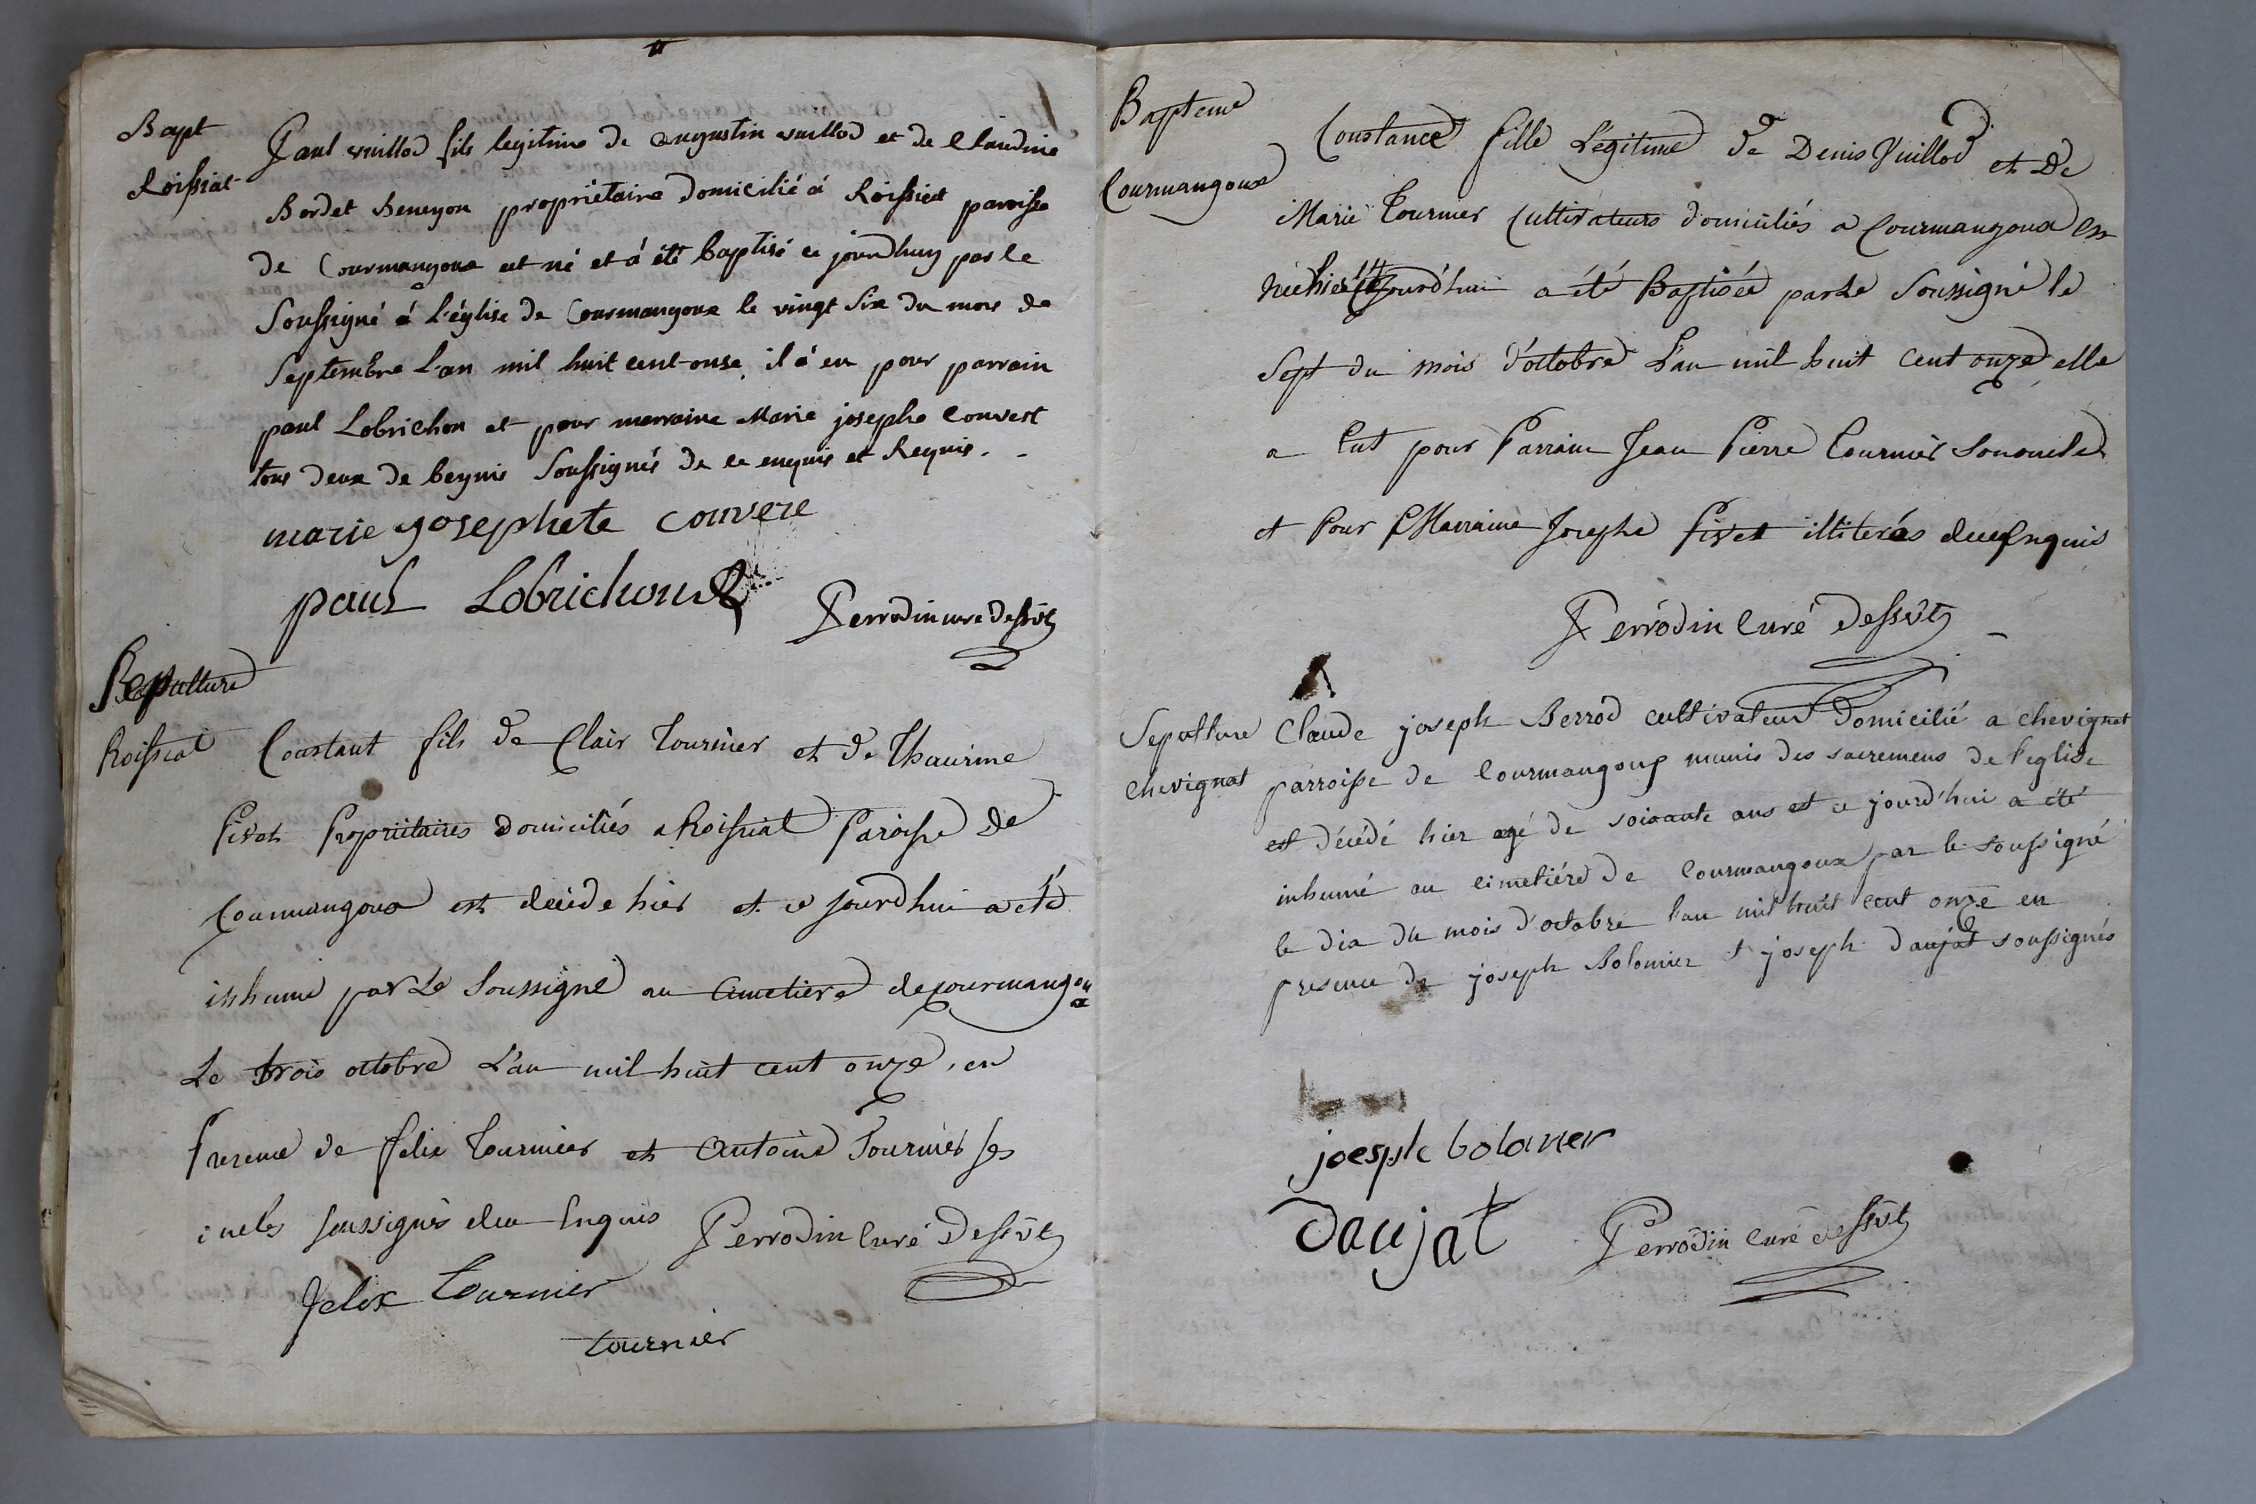 Bapt
Roissiat
Paul vuillod fils legitime de augustin vuillod et de Claudine
Bordet Beneyon propriétaire domicilié á Roissiat paroisse
de Courmangoux est né et á été baptisé ce jourdhuy par le
Soussigné á L'église de Courmangoux le vingt Six du mois de
Septembre L'an mil huit cent-onse, il á eu pour parrain
paul Lobrichon et pour marraine Marie josephe Convert
tous deux de beynis Soussignés de ce enquis et Requis. -
marie josephete convere
paul Lobrichon
Perrodin curé dessvt
Sepulture
Roissiat
Constant fils de Clair Tournier et de Thaurine
Pivet Propriètaires domiciliés a Roissiat Paroisse de
Courmangoux est décédé hier et ce jourdhui a été
inhumé par Le Soussigné au Cimetiere de courmangoux
Le trois octobre L'an mil huit cent onze, en
Presence de felix Tournier et Antoine Tournier ses
oncles soussignés deu Enquis Perrodin Curé Dessvt
felix tournier
tournier
Bapteme
Courmangoux
Constance fille Légitime de Denis Vuillod et De
Marie Tournier Cultivateurs domiciliés a Courmangoux est
née hier jourd'hui a été Baptisée par Le Soussigné le
Sept du mois d'octobre L'an mil huit cent onze, elle
a Eut pour Parrain Jean Pierre Tournier Son oncle
et Pour Marraine Josephe Pivet illiterés deu Enquis
Perrodin Curé Dessvt
Sepulture
chevignat
Claude joseph Berrod cultivateur domicilié a chevignat
parroisse de Courmangoux munis des sacremens de l'eglise
est décédé hier agé de soixante ans et ce jourd'hui a été
inhumé au cimetiére de Courmangoux par le soussigné
le dix du mois d'octobre l'an mil huit cent onze en
presence de joseph Bolomier et joseph daujat soussignés
joesph bolomer
Daujat
Perrodin Curé dessvt